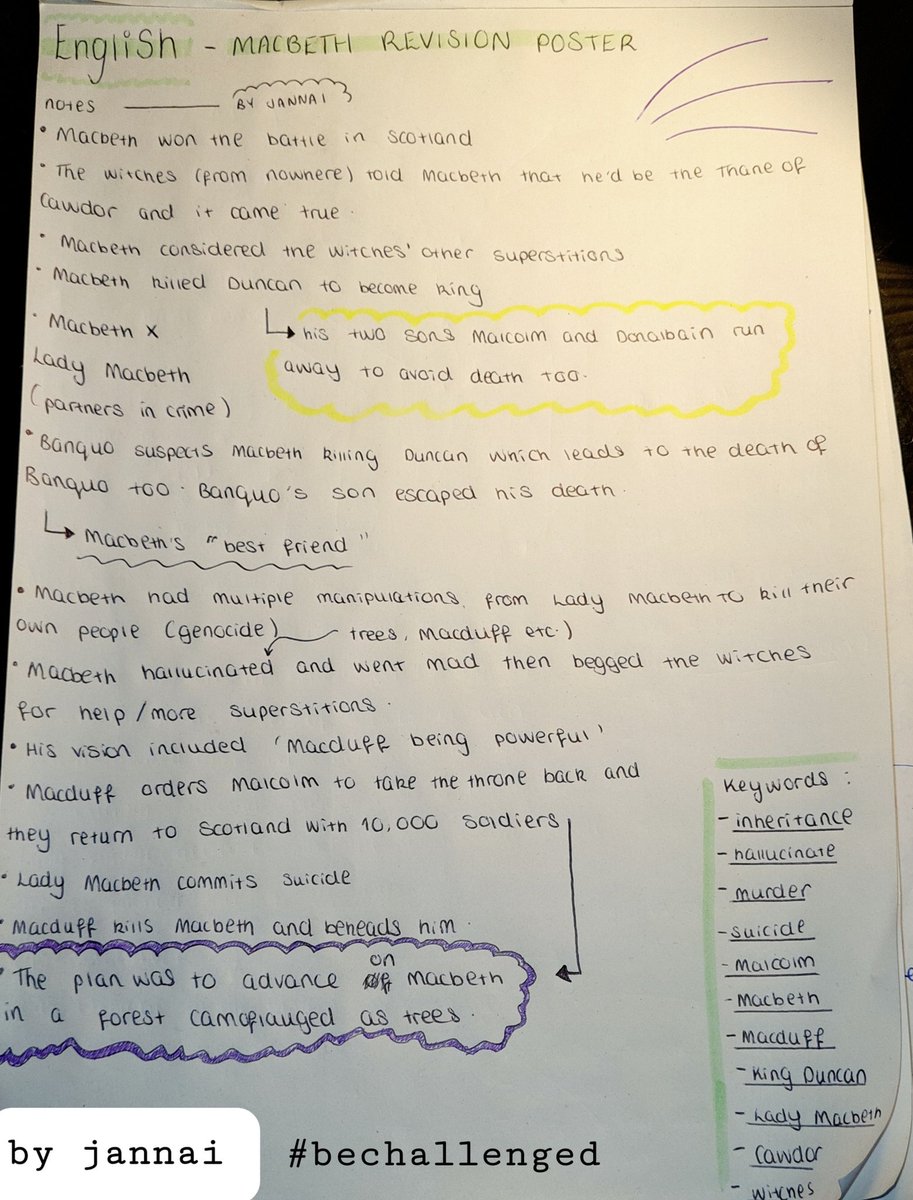 English - MACBETH REVISION POSTER
notes
BY JANNAI
• Macbeth won the battle in Scotland
• The witches (from nowhere) told Macbeth that he'd be the Thane of
Cawdor and it came true.
• Macbeth considered the witches' other superstitions
• Macbeth killed Duncan to become king
his two sons Malcolm and Donalbain run
away to avoid death too.
• Macbeth x
Lady Macbeth
(partners in crime)
• Banquo suspects Macbeth killing Duncan which leads to the death of
Banquo too. Banquo's son escaped his death.
Macbeth's "best friend"
• Macbeth had multiple manipulations, from Lady Macbeth to kill their
own people (genocide) trees, Macduff etc.)
• Macbeth hallucinated and went mad then begged the witches
for help/more superstitions.
• His vision included 'Macduff being powerful'
• Macduff orders Malcolm to take the throne back and
they return to Scotland with 10,000 soldiers
• Lady Macbeth commits suicide
• Macduff kills Macbeth and beheads him.
• The plan was to advance on Macbeth
in a forest camoflauged as trees.
Keywords:
- inheritance
- hallucinate
- murder
- suicide
- Malcolm
- Macbeth
- Macduff
- King Duncan
- Lady Macbeth
- Cawdor
- witches
by jannai #bechallenged